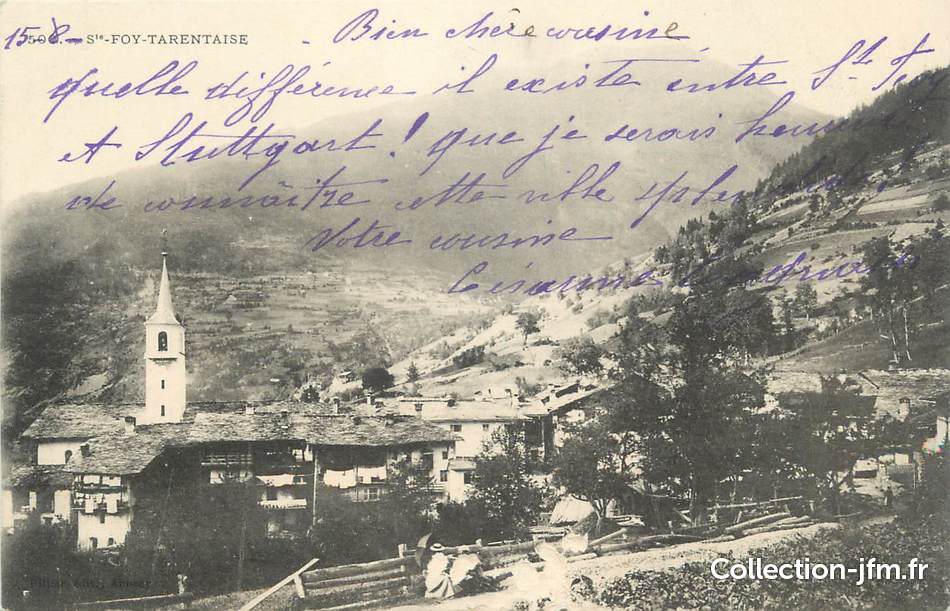 15-8-
Ste-FOY-TARENTAISE
- Bien chère cousine
Quelle différence il existe entre St F
et Stuttgart! Que je serais heureuse
de connaître cette ville splendide!
Votre cousine
Césarine
Pittier édit., Annecy
Collection-jfm.fr